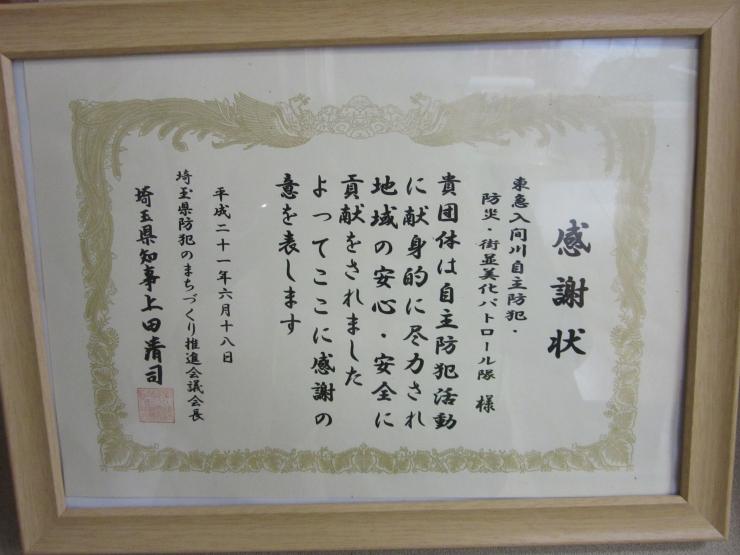 感謝状
東急入間川自主防犯・
防災・街並美化パトロール隊 様
貴団体は自主防犯活動
に献身的に尽力され
地域の安心・安全に
貢献をされました
よってここに感謝の
意を表します
平成二十一年六月十八日
埼玉県防犯のまちづくり推進会議会長
埼玉県知事上田清司